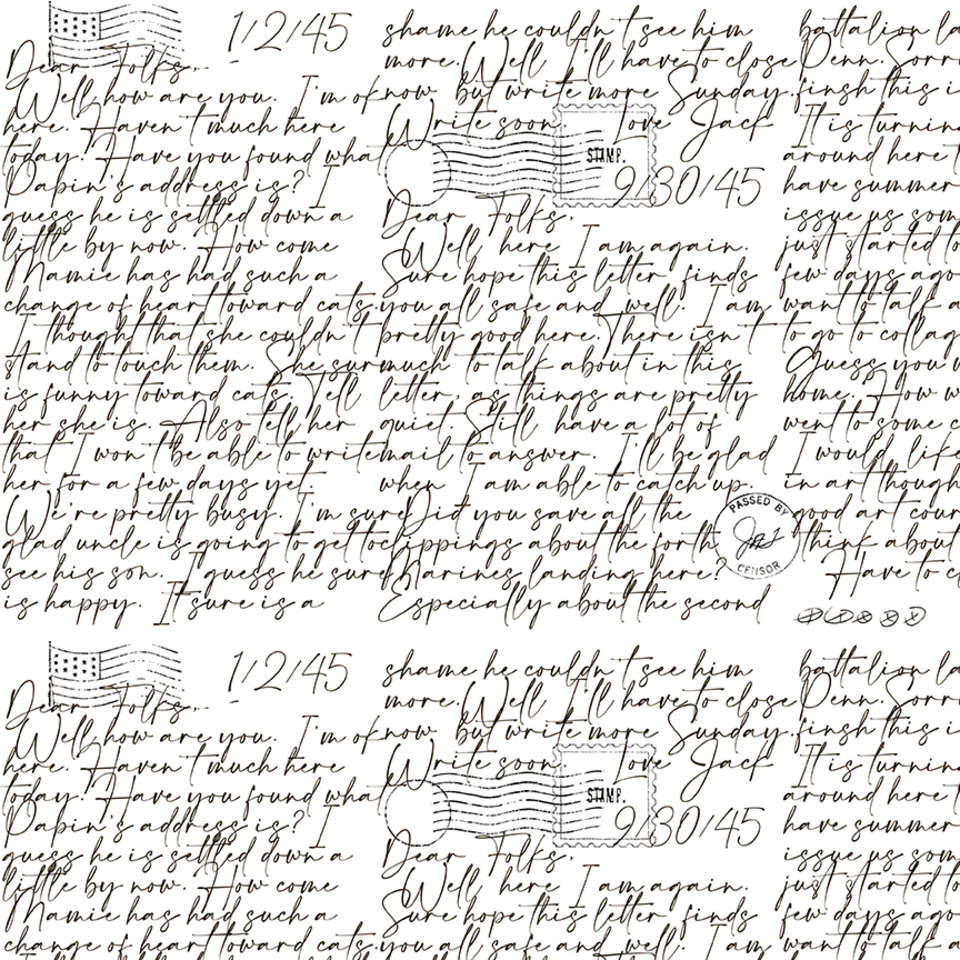 1/2/45
Dear Folks,
Well how are you. I'm ok
here. Haven't much here
today. Have you found what
Papin's address is? I
guess he is settled down a
little by now. How come
Mamie has had such a
change of heart toward cats.
I thought that she couldn't
stand to touch them. She sur
is funny toward cats. Tell
her she is. Also tell her
that I won't be able to write
her for a few days yet.
We're pretty busy. I'm sure
glad uncle is going to get to
see his son. I guess he sure
is happy. It sure is a
shame he couldn't see him
more. Well I'll have to close
now but write more Sunday.
Write soon. Love Jack
STAMP.
9/30/45
Dear Folks,
Well, here I am again.
Sure hope this letter finds
you all safe and well. I am
pretty good here. There isn't
much to talk about in this
letter, as things are pretty
quiet. Still have a lot of
mail to answer. I'll be glad
when I am able to catch up.
Did you save all the
clippings about the forth
Marines landing here?
Especially about the second
PASSED BY
CENSOR
battalion la
Penn. Sorr
finsh this i
It is turnin
around here t
have summer
issue us som
just started to
few days ago
want to talk a
to go to collag
Guess you w
home. How w
went to some c
I would like
in art though
good art cour
think about
Have to cl
1/2/45
Dear Folks,
Well how are you. I'm ok
here. Haven't much here
today. Have you found what
Papin's address is? I
guess he is settled down a
little by now. How come
Mamie has had such a
change of heart toward cats.
shame he couldn't see him
more. Well I'll have to close
now but write more Sunday.
Write soon. Love Jack
STAMP.
9/30/45
Dear Folks,
Well, here I am again.
Sure hope this letter finds
you all safe and well. I am
battalion la
Penn. Sorr
finsh this i
It is turnin
around here t
have summer
issue us som
just started to
few days ago
want to talk a